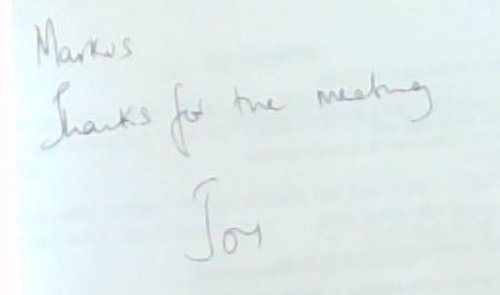 Markus
Thanks for the meeting
Joy